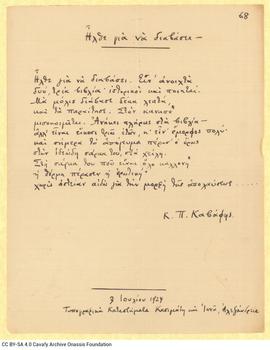 68
Ἦλθε γιὰ νὰ διαβάσει —
Ἦλθε γιὰ νὰ διαβάσει. Εἶν' ἀνοιχτὰ
δυό, τρία βιβλία· ἱστορικοὶ καὶ ποιηταί.
Μὰ μόλις διάβασε δέκα λεπτά,
καὶ τὰ παραίτησε. Στὸν καναπὲ
μισοκοιμᾶται. Ἀνήκει πλήρως στὰ βιβλία —
ἀλλ' εἶναι εἴκοσι τριῶ ἐτῶν, κ' εἶν' ἔμορφος πολύ·
καὶ σήμερα τὸ ἀπόγευμα πέρασ' ὁ ἔρως
στὴν ἰδεώδη σάρκα του, στὰ χείλη.
Στὴ σάρκα του ποὺ εἶναι ὅλο καλλονὴ
ἡ θέρμη πέρασεν ἡ ἐρωτική·
χωρὶς ἀστείαν αἰδὼ γιὰ τὴν μορφὴ τῆς ἀπολαύσεως .....
Κ. Π. Καβάφης
3 Ἰουλίου 1924
Τυπογραφικὰ Καταστήματα Κασιμάτη καὶ Ἰωνᾶ, Ἀλεξάνδρεια
CC BY-SA 4.0 Cavafy Archive Onassis Foundation